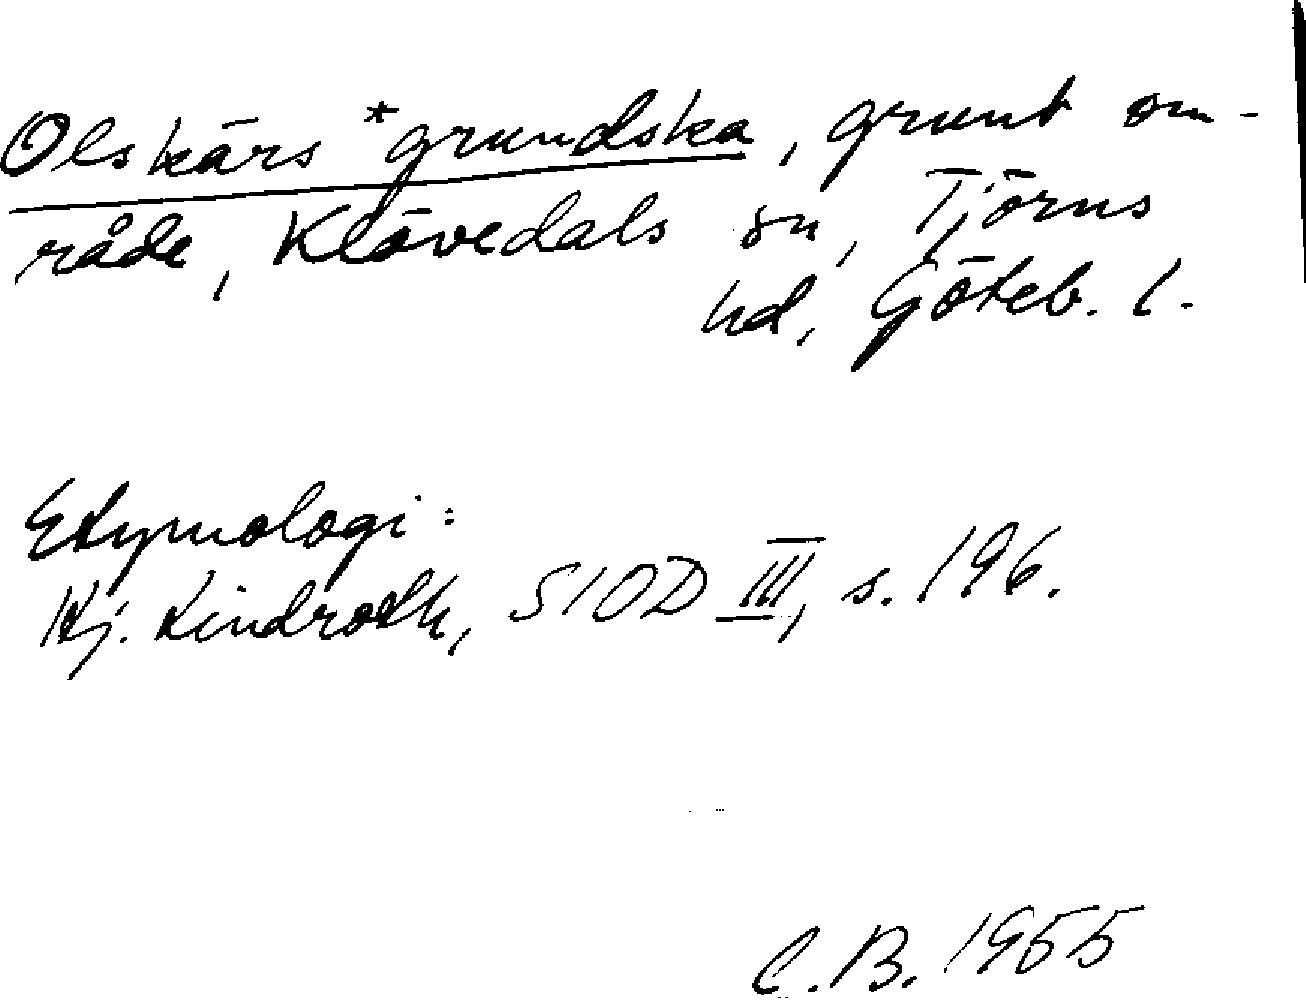 Olskärs *grundska, grunt om-
råde, Klövedals sn, Tjörns
hd, Göteb. l.
Etymologi:
Hj. Lindroth, SIOD III, s. 196.
C.B. 1955